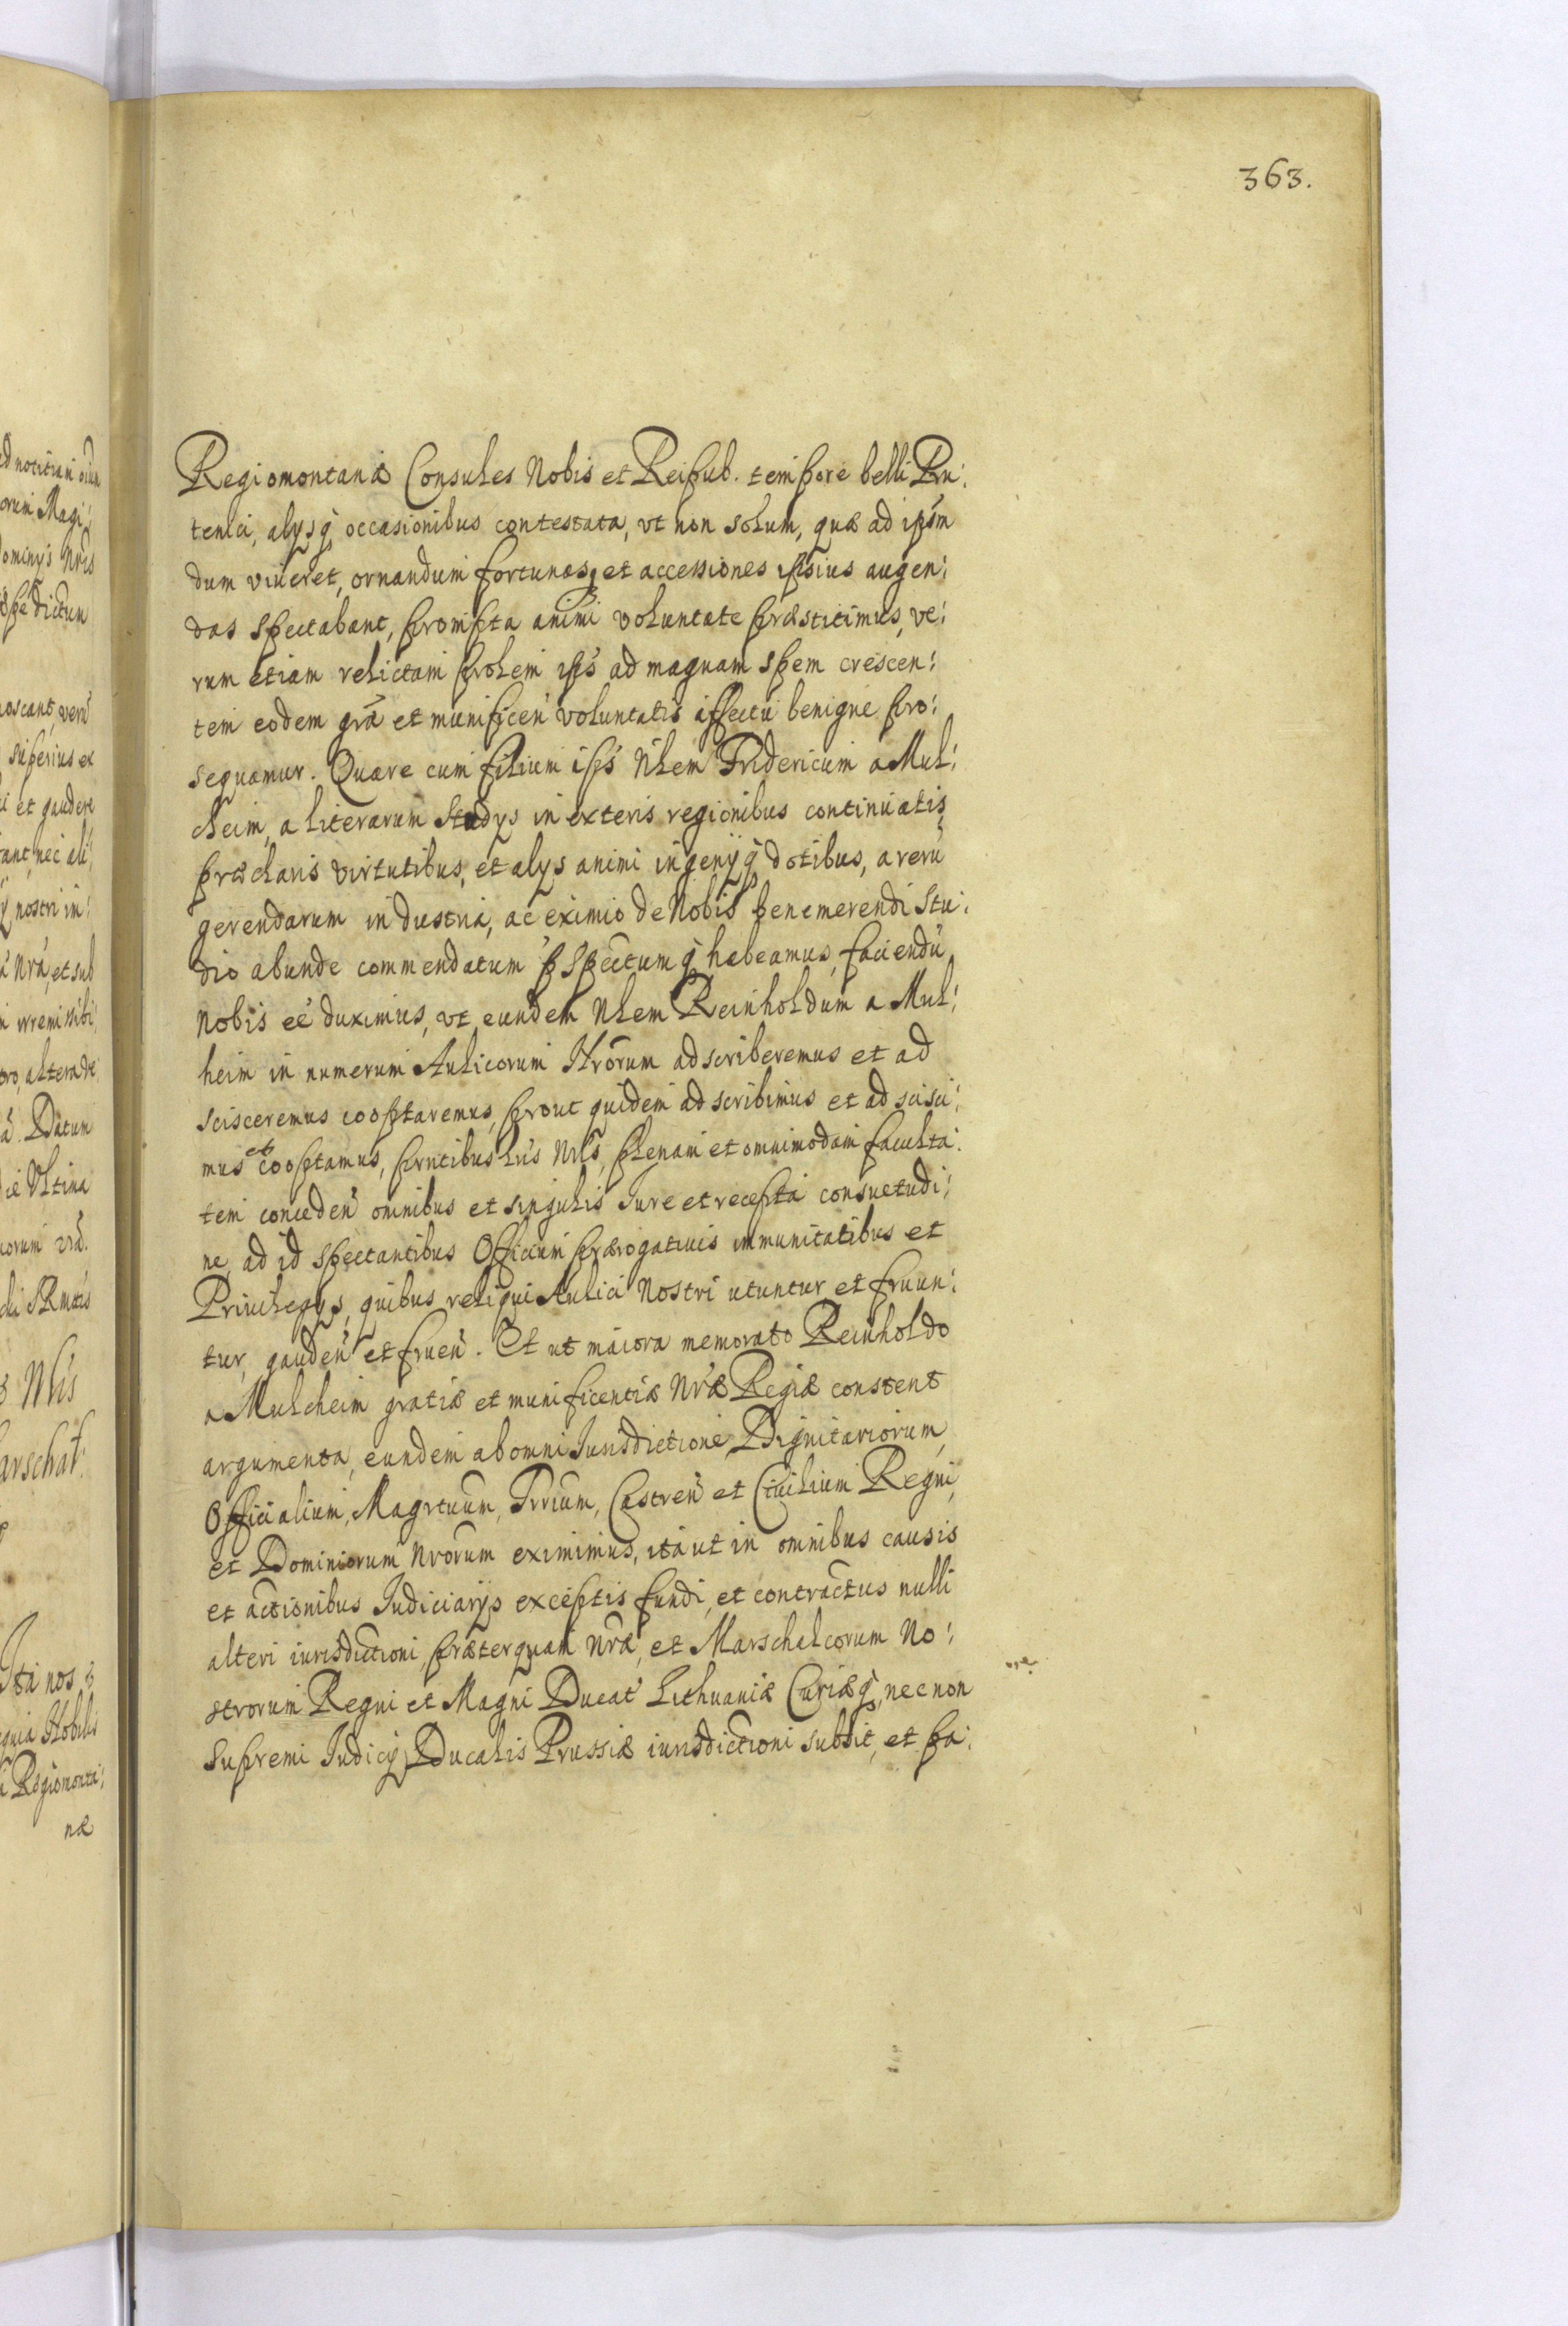 363.
Regiomontanæ Consules Nobis et Reipub. tempore belli Pru:
tenici, alysq̀ occasionibus contestata, vt non solum, quæ ad ipsm̄
dum viueret, ornandum fortunasq̀ et accessiones ipsius augen:
das spectabant, prompta animi voluntate præstitimus, ve:
rum etiam relictam prolem ips̄ ad magnam spem crescen:
tem eodem grā et munificen̄ voluntatis affectu benigne pro:
sequamur. Quare cum filium ips̄ Nlem Fridericum a Mul:
cheim, a literarum Studys in exteris regionibus continuatis,
præclaris virtutibus, et alys animi ingenijq̀ dotibus, a rerū
gerendarum industria, ac eximio de Nobis benemerendi stu:
dio abunde commendatum p̄spectumq̀ habeamus, faciendū
Nobis eē duximus, vt eundem Nlem Reinholdum a Mul:
heim in numerum Aulicorum Nrōrum adscriberemus et ad
scisceremus cooptaremus, prout quidem adscribimus et adscisci:
mus et cooptamus, prn̄tibus lr̄is Nr̄is, plenam et omnimodam faculta:
tem conceden̄ omnibus et singulis Iure et recepta consuetudi:
ne, ad id spectantibus Officium prærogatiuis immunitatibus et
Priuilegys, quibus reliqui Aulici Nostri utuntur et fruun:
tur, gauden̄ et fruen̄. Et ut maiora memorato Reinholdo
a Mulcheim gratiæ et munificentiæ Nr̄æ Regiæ constent
argumenta, eundem ab omni Iurisdictione Dignitariorum,
Officialium, Magrtuūm, Trrium, Castren̄ et Ciuilium Regni,
et Dominiorum Nrōrum eximimus, ita ut in omnibus causis
et actionibus Iudiciarijs exceptis fundi, et contractus nulli
alteri iurisdictioni, præterquam Nr̄æ, et Marschalcorum No:
strorum Regni et Magni Ducat̄ Lithuaniæ Curiæq̀, nec non
Supremi Iudicij Ducalis Prussiæ iurisdictioni subsit, et pa: